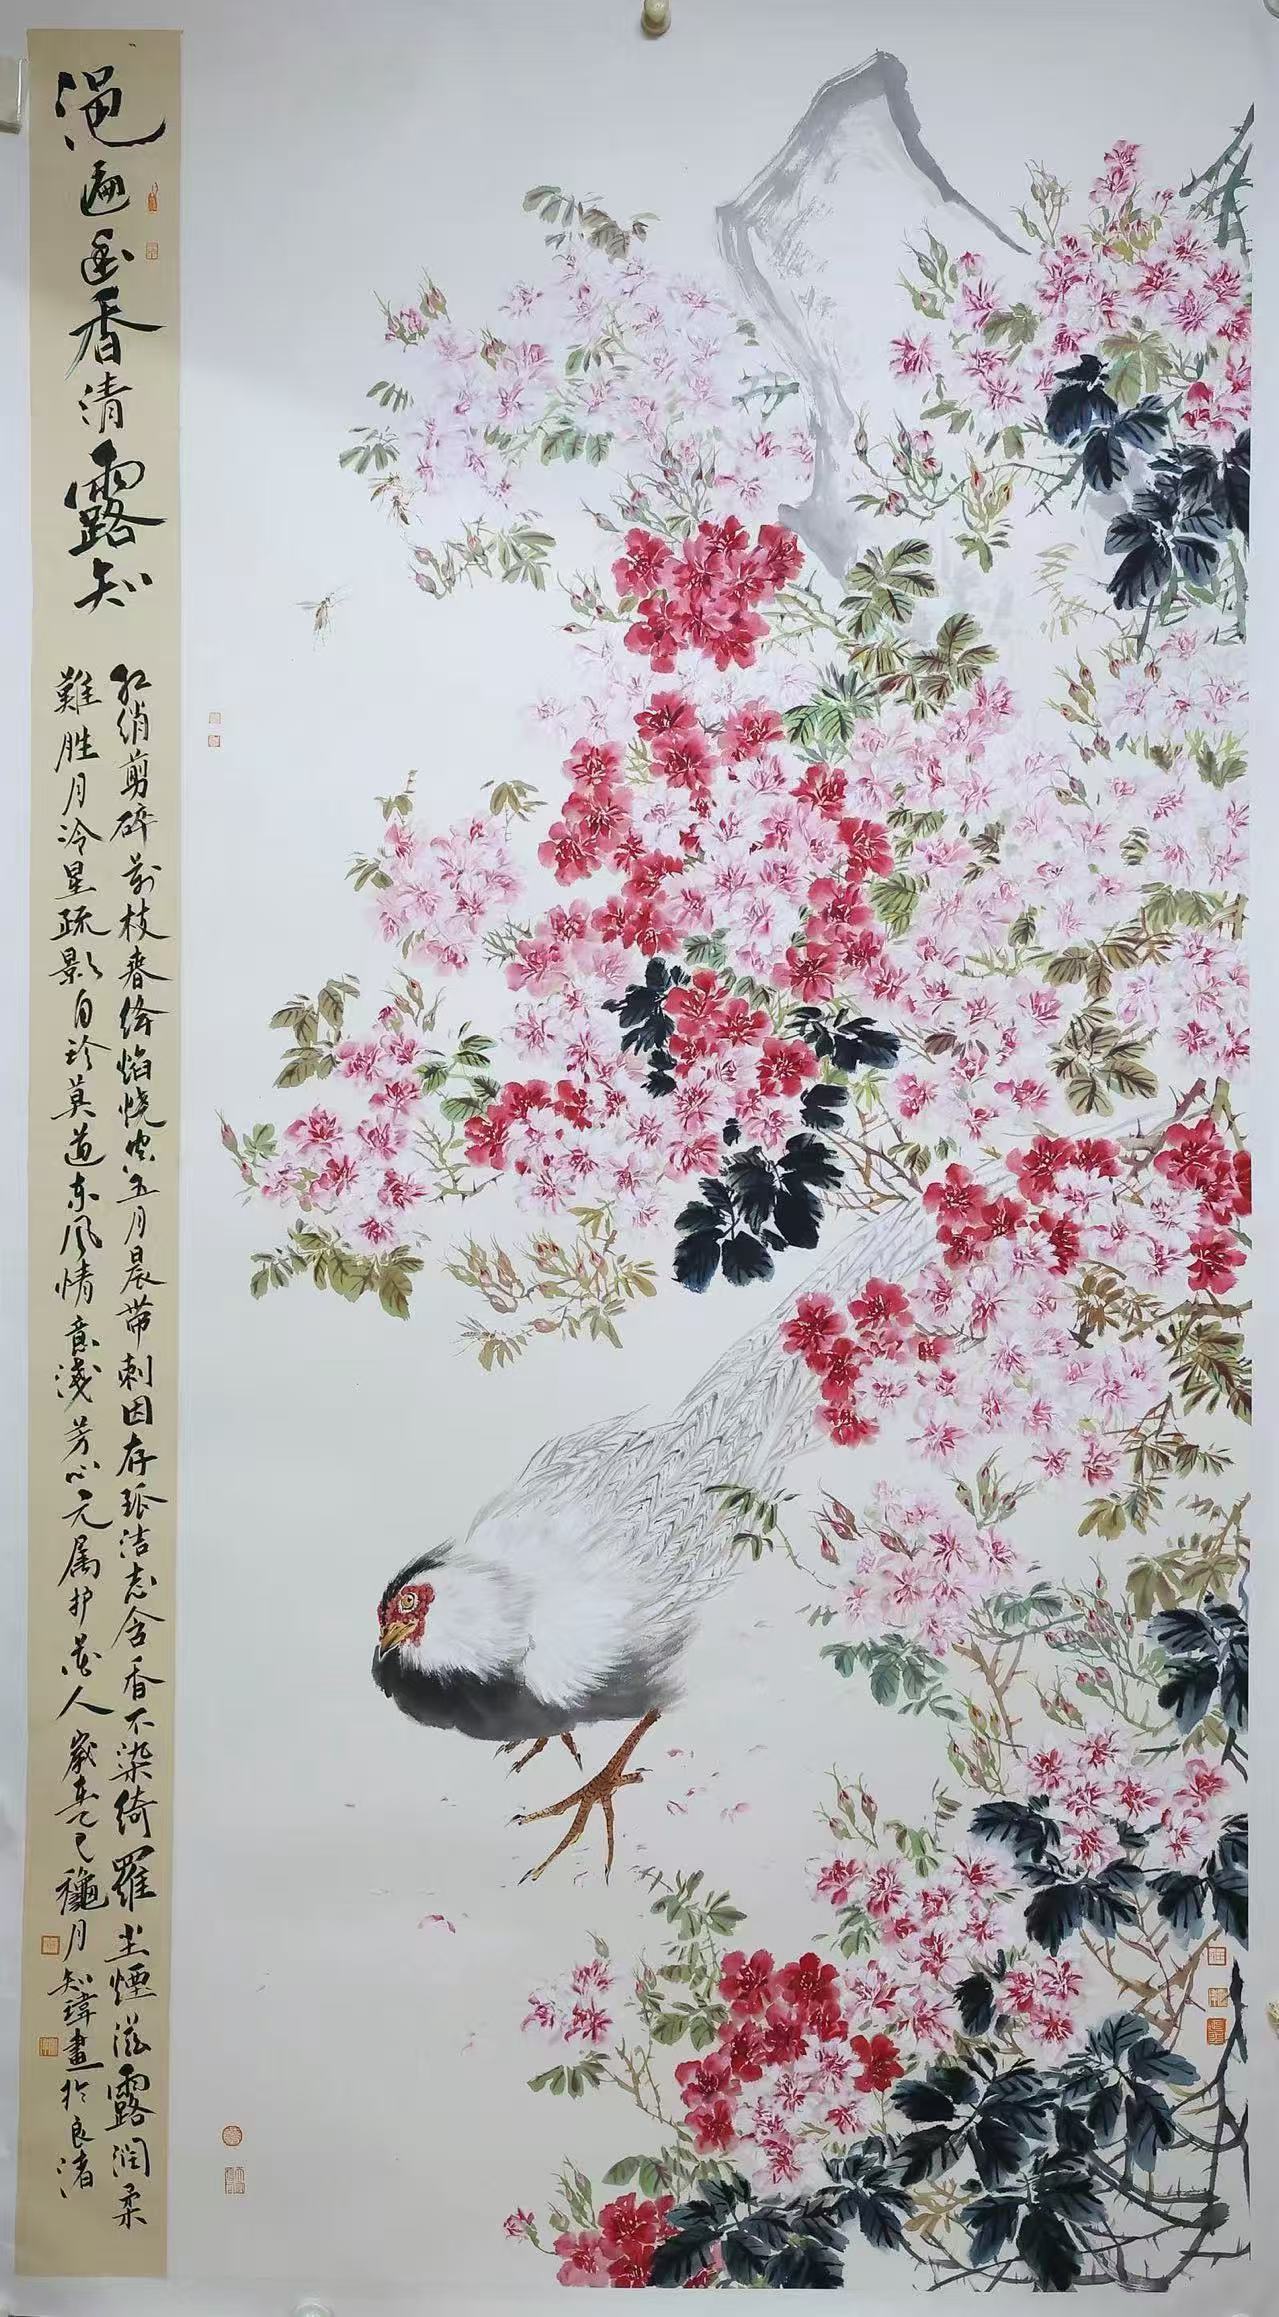 浥遍幽香清露知
红绡剪碎枝春绛焰烧空五月晨带刺因存孤洁志含香不染绮羅尘煙滋露润柔
難胜月冷星疏影自珍莫道东风情意淺芳心元属护花人歲在乙巳龝月知瑋畫於良渚